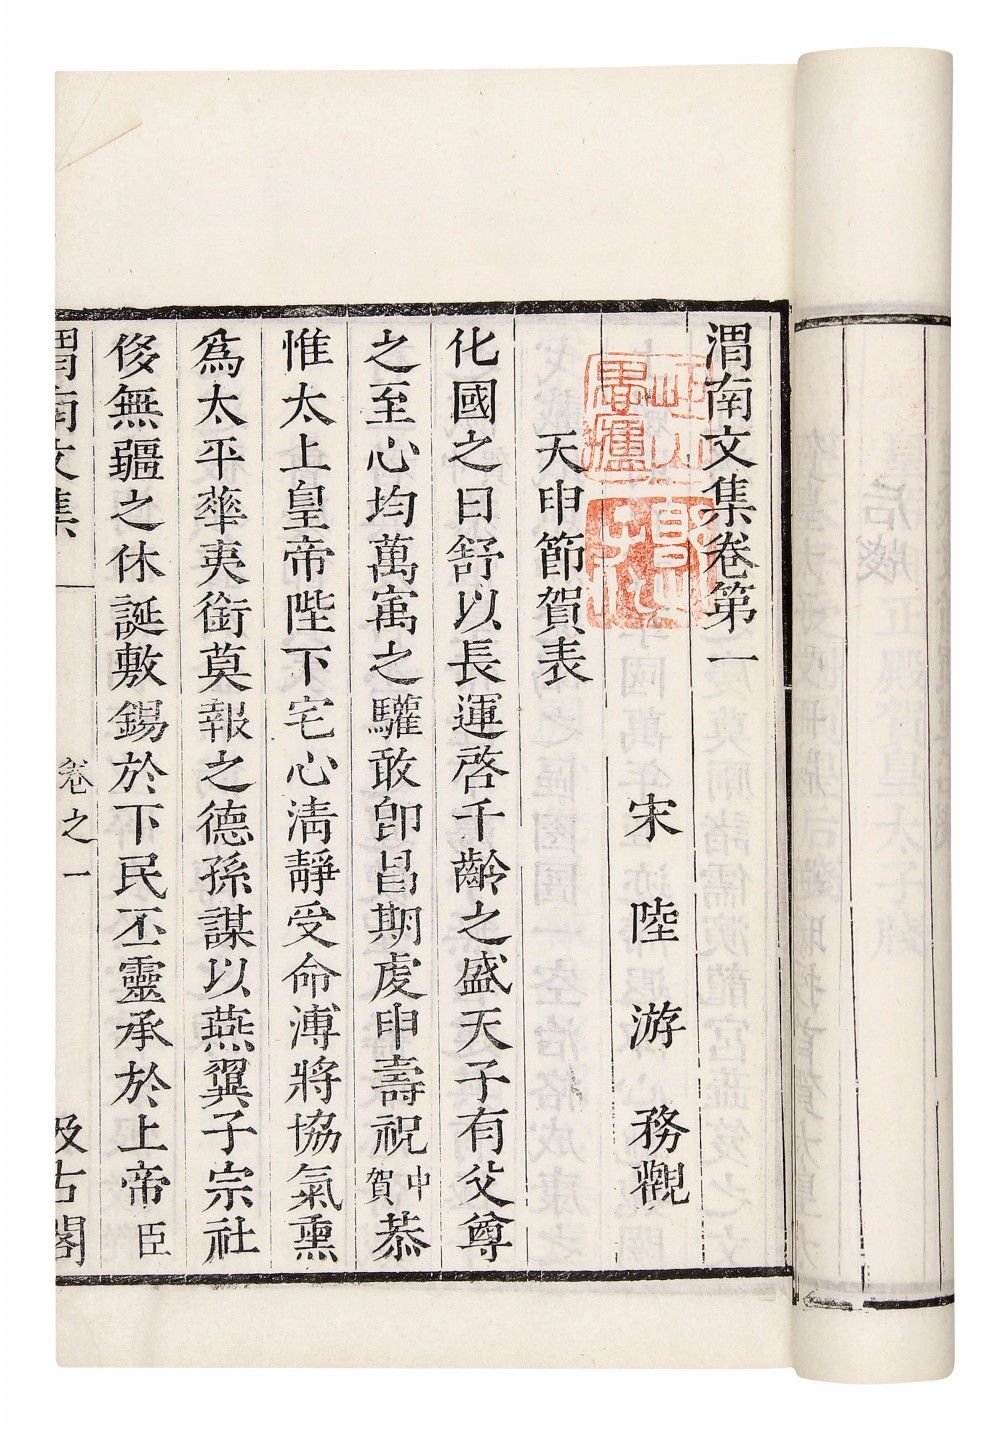 渭南文集卷第一
宋陸游務觀
天申節賀表
化國之日舒以長運啓千齡之盛天子有父尊
之至心均萬㝢之驩敢卽昌期虔申壽祝中賀恭
惟太上皇帝陛下宅心淸靜受命溥將協氣熏
爲太平華夷銜莫報之德孫謀以燕翼子宗社
俊無疆之休誕敷錫於下民丕靈承於上帝臣
渭南文集
卷之一
汲古閣